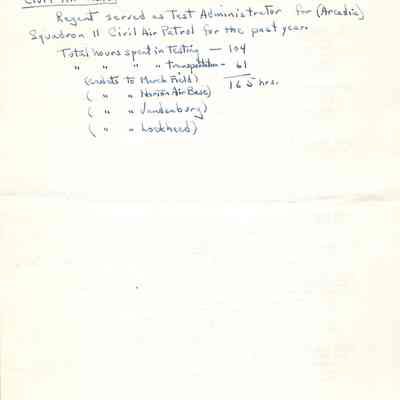 Civil Air Patrol
Regent served as Test Administrator for (Arcadia)
Squadron 11 Civil Air Patrol for the past year.
Total hours spent in Testing — 104
" " " " transportation - 61
(Cadets to March Field) 165 hrs.
( " " Norton Air Base)
( " " Vandenburg)
( " " Lockheed)